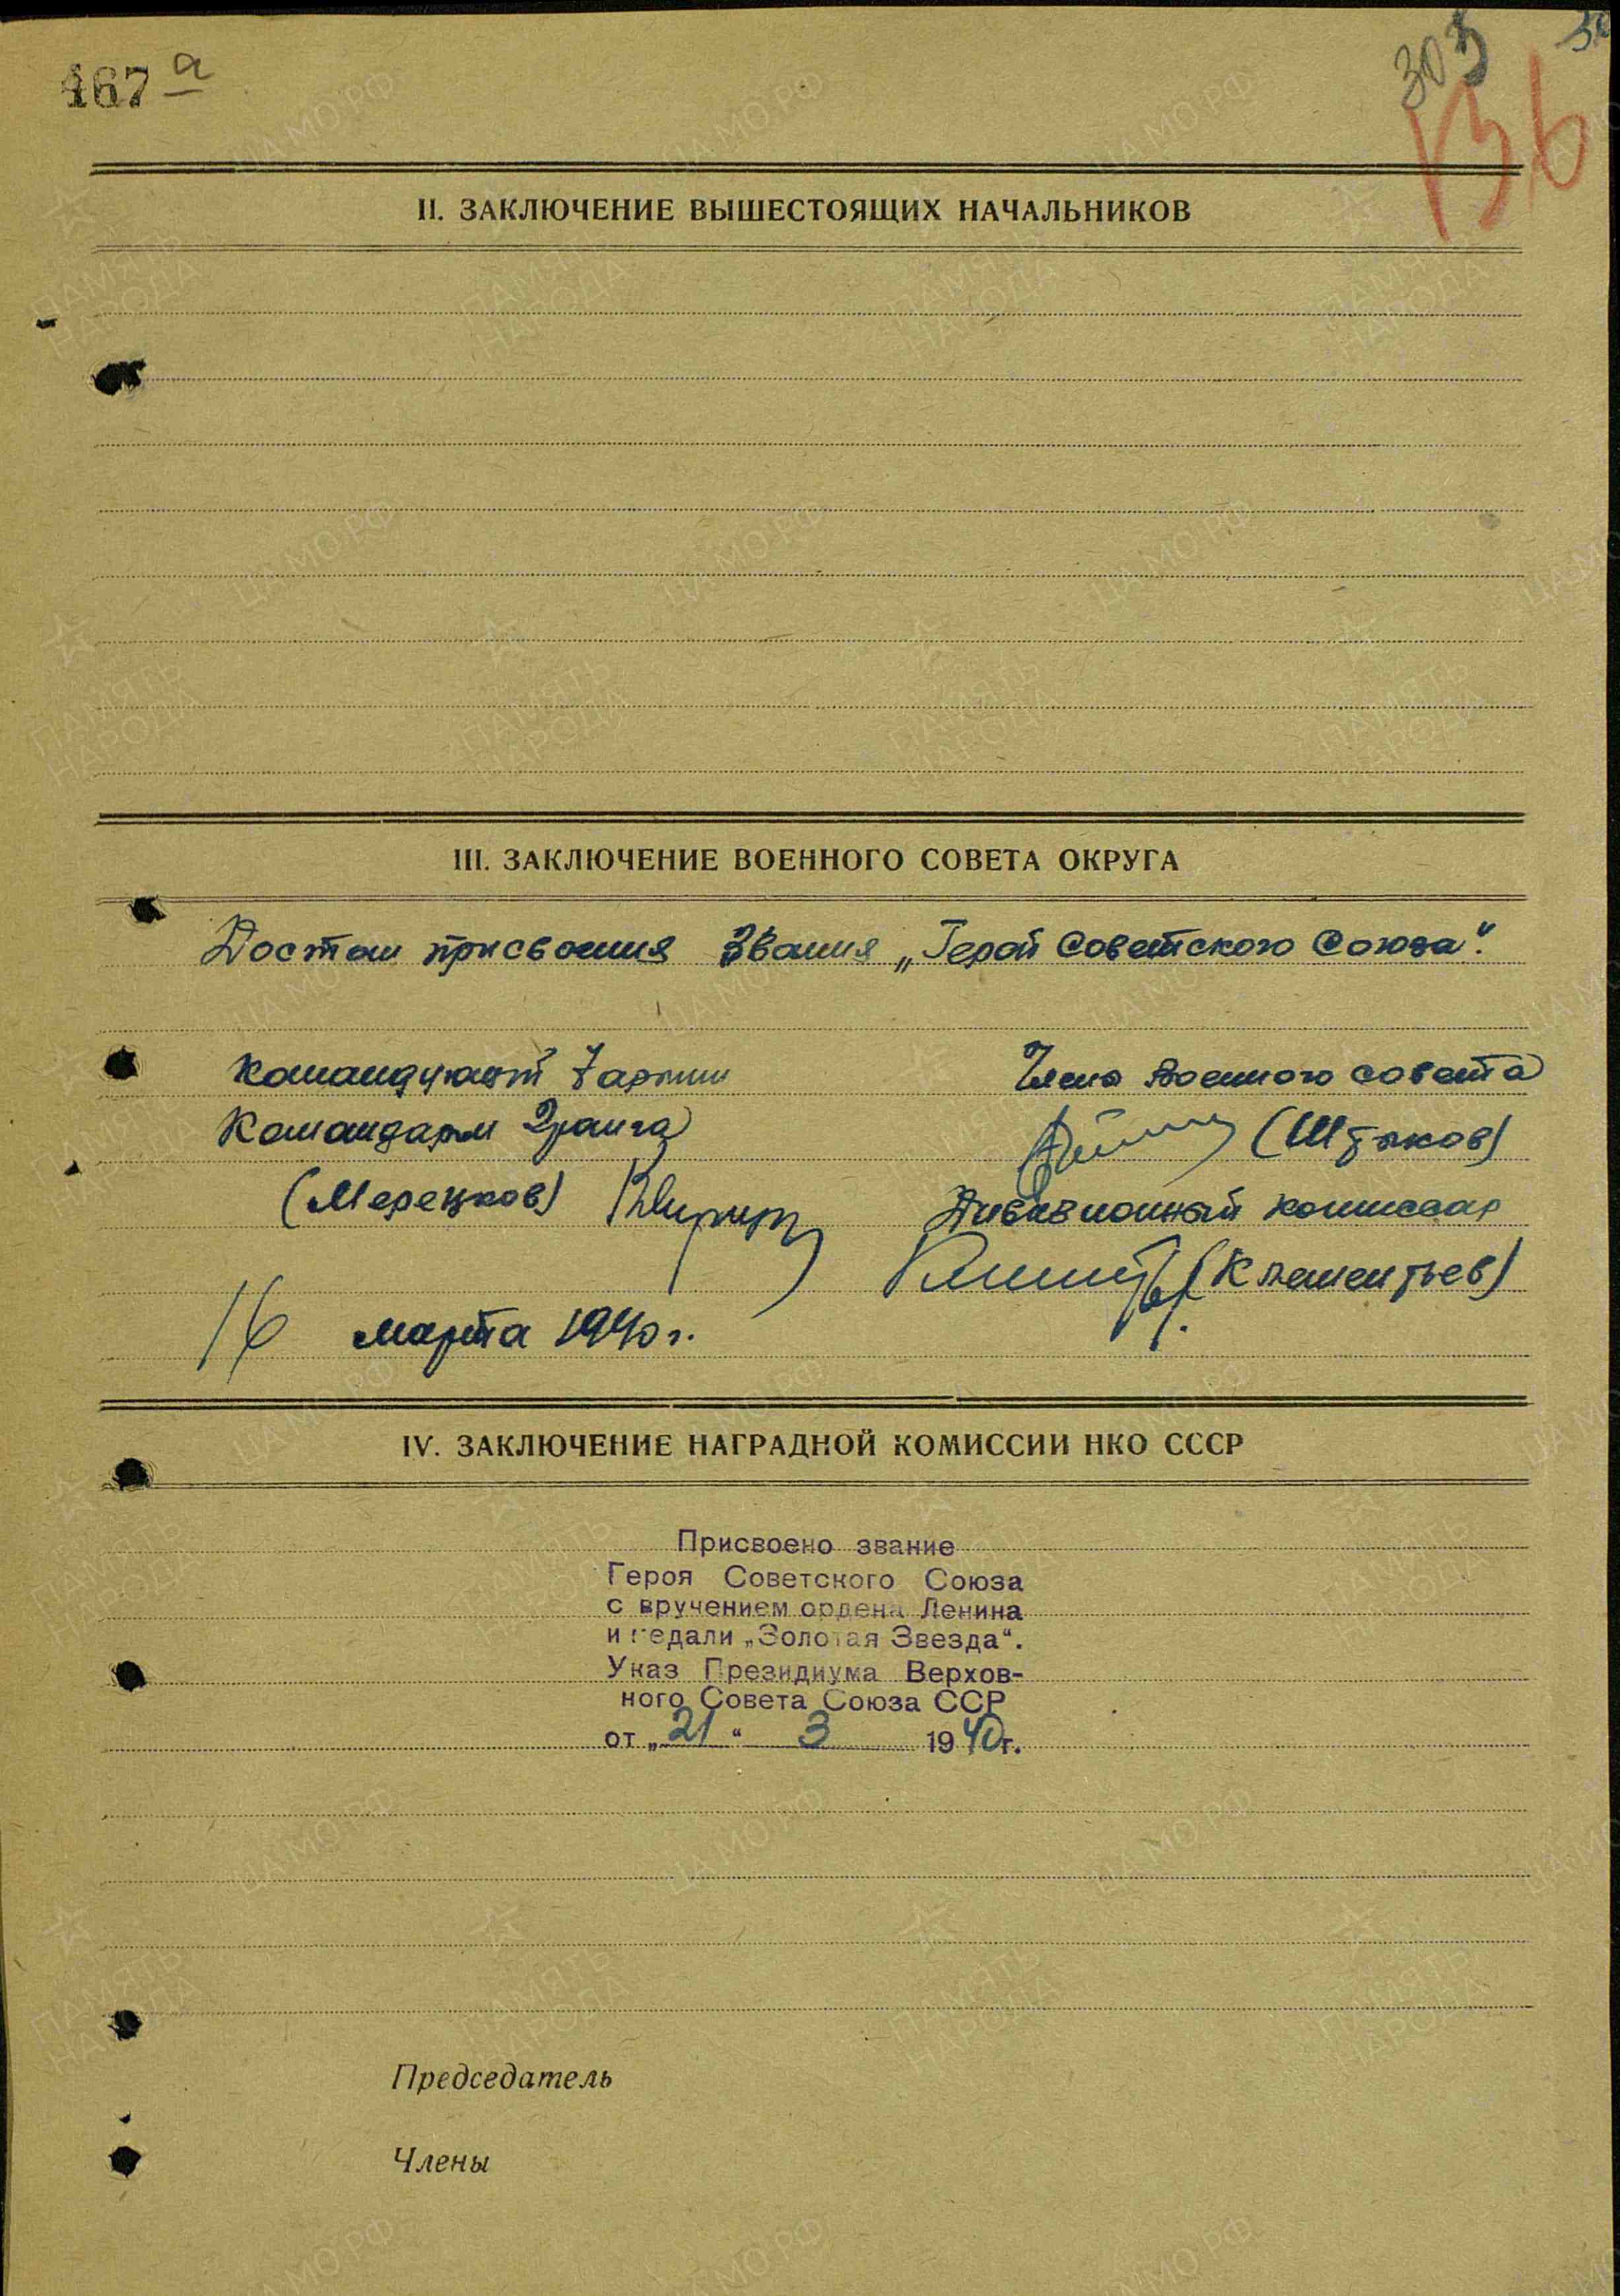 467 а
303
136
II. ЗАКЛЮЧЕНИЕ ВЫШЕСТОЯЩИХ НАЧАЛЬНИКОВ
III. ЗАКЛЮЧЕНИЕ ВОЕННОГО СОВЕТА ОКРУГА
Достоин присвоения звания „Герой Советского Союза".
Командующий 7 армии
Член Военного совета
Командарм 2 ранга
(Штыков)
(Мерецков)
Дивизионный комиссар
(Клементьев)
16 марта 1940 г.
IV. ЗАКЛЮЧЕНИЕ НАГРАДНОЙ КОМИССИИ НКО СССР
Присвоено звание
Героя Советского Союза
с вручением ордена Ленина
и медали „Золотая Звезда“.
Указ Президиума Верхов-
ного Совета Союза ССР
от „21“ 3 1940 г.
Председатель
Члены
ПАМЯТЬ НАРОДА
ЦА МО РФ